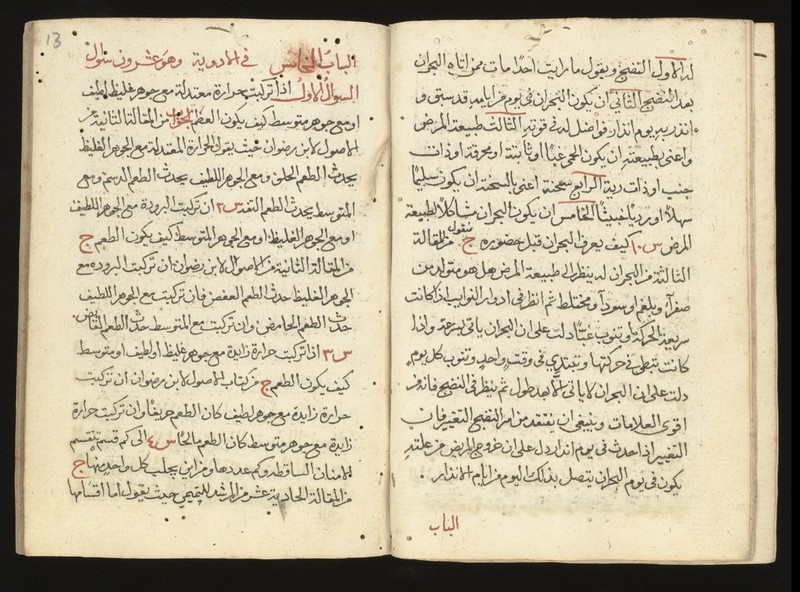 له الاول النضج ويقول ما رايت احدا مات ممن اتاه البحران
بعد النضج الثاني ان يكون البحران في يوم من ايامه قد سبق و
انذر به يوم انذار فواضل له في قوته الثالث طبيعة المرض
واعني بطبيعته ان يكون الحمى غبا او ثابتة او محرقة او ذات
جنب او ذات رية الرابع سحنته اعني السحنة ان يكون سليما
سهلا او رديا خبيثا الخامس ان يكون البحران مشاكلا لطبيعة
المرض س١٠ كيف يعرف البحران قبل حضوره ج نقول من المقالة
الثالثة من البحران له ينظر الى طبيعة المرض هل هو متولد من
صفرا وبلغم او سودا او مختلط ثم انظر في ادوار النوايب اذا كانت
سريعة الحركة وتنوب غبا دلت على ان البحران ياتي بسرعة واذا
كانت تبطي في حركتها وتبتدي في وقت واحد وتنوب كل يوم
دلت على ان البحران لا ياتي الا بعد طول ثم ينظر في النضج فانه
اقوى العلامات وينبغي ان يفتقد من امر النضج التغير فان
التغير اذا حدث في يوم انذار دل على ان خروج المريض من علته
يكون في يوم البحران يتصل بذلك اليوم من ايام الانذار
الباب
13
الباب الخامس في الادوية وهو عشرون سوال
السوال الاول اذا تركبت حرارة معتدلة مع جوهر غليظ او لطيف
او مع جوهر متوسط كيف يكون الطعم الجواب من المقالة الثانية من
الاصول لابن رضوان حيث يقول الحرارة المعتدلة مع الجوهر الغليظ
يحدث الطعم الحلو ومع الجوهر اللطيف يحدث الطعم الدسم ومع
المتوسط يحدث الطعم التفه س٢ ان تركبت البرودة مع الجوهر اللطيف
او مع الجوهر الغليظ او مع الجوهر المتوسط كيف يكون الطعم ج
من المقالة الثانية من الاصول لابن رضوان ان تركبت البرودة مع
الجوهر الغليظ حدث الطعم العفص فان تركبت مع الجوهر اللطيف
حدث الطعم الحامض وان تركبت مع المتوسط حدث الطعم القابض
س٣ اذا تركبت حرارة زايدة مع جوهر غليظ او لطيف او متوسط
كيف يكون الطعم ج من كتاب الاصول لابن رضوان ان تركبت
حرارة زايدة مع جوهر لطيف كان الطعم حريفا وان تركبت حرارة
زايدة مع جوهر متوسط كان الطعم مالحا س٤ الى كم قسم تنقسم
الامنان الساقطة وكم عددها ومن اين يجلب كل واحد منها ج
من المقالة الحادية عشر من المرشد للتميمي حيث يقول اما اقسامها